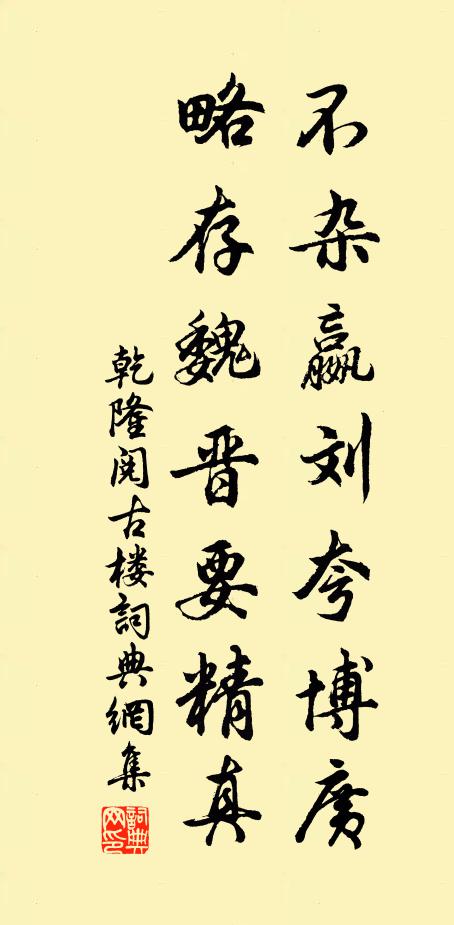 不杂嬴刘夸博广
略存魏晋要精真
乾隆阅古楼詞典網集
詞典网印